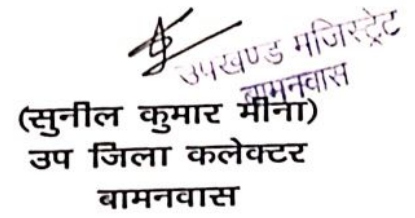 उपखण्ड मजिस्ट्रेट
बामनवास
(सुनील कुमार मीना)
उप जिला कलेक्टर
बामनवास